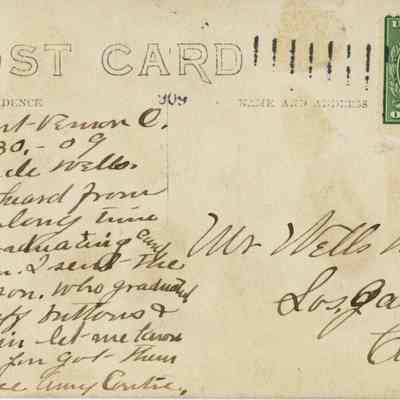 OST CARD
DENCE
909
NAME AND ADDRESS
nt-Vernon O.
30.-09
de Wells.
heard from
long time
raduating
n. I send the
son. who graduated
buttons &
in let me know
you got them
Mr Wells
Los, Ga